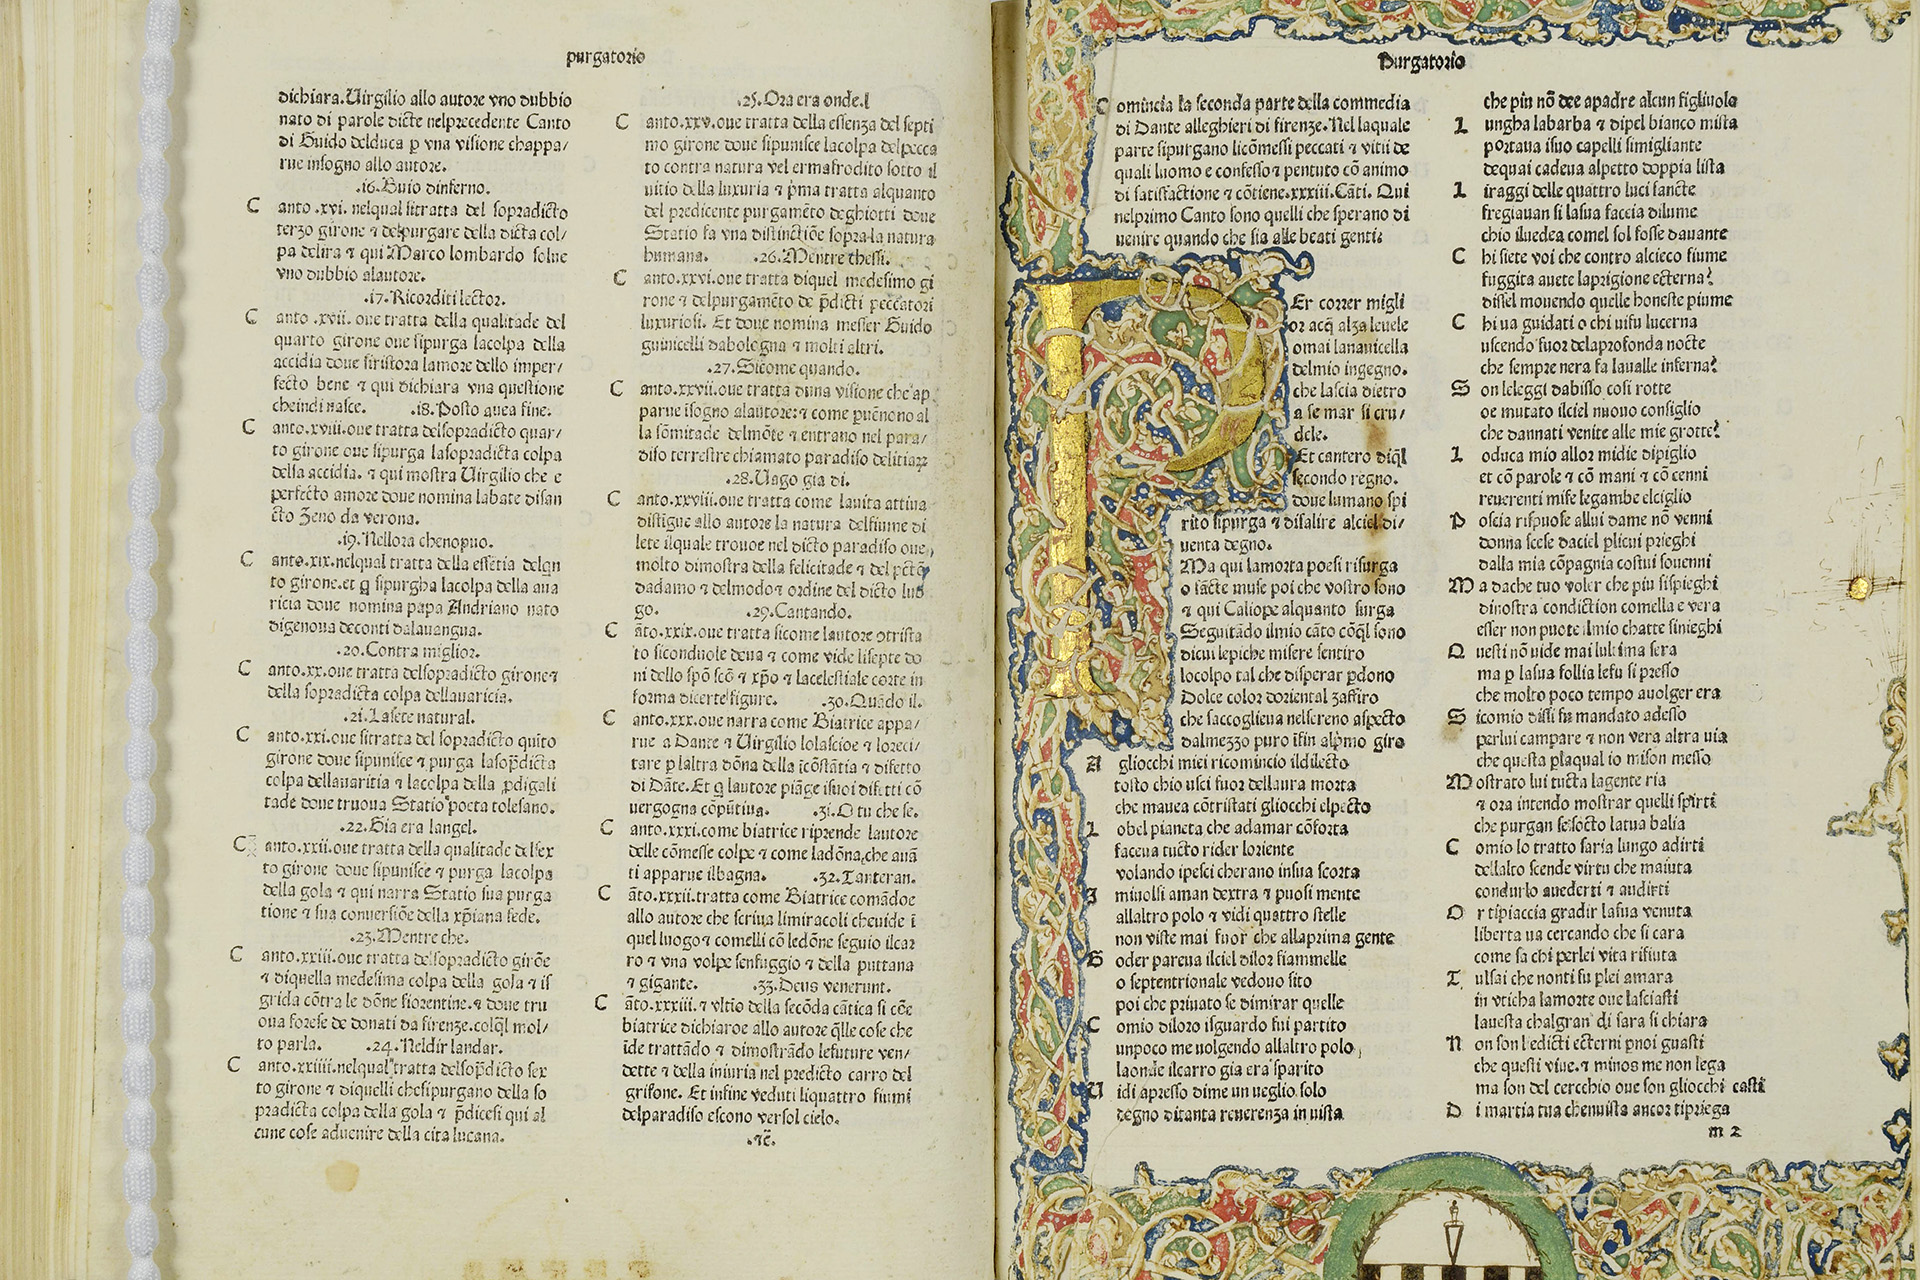 purgatorio
dichiara.Uirgilio allo autore vno dubbio
nato di parole dicte nelprecedente Canto
di Guido delduca p vna visione chappa/
rue insogno allo autore.
.16.Buio dinferno.
Canto .xvi. nelqual sitratta del sopradicto
terzo girone ⁊ delpurgare della dicta col/
pa delira ⁊ qui Marco lombardo solue
vno dubbio alautore.
.17.Ricorditi lector.
Canto .xvii. oue tratta della qualitade del
quarto girone oue sipurga lacolpa della
accidia doue siristora lamore dello imper/
fecto bene ⁊ qui dichiara vna questione
cheindi nasce. .18.Posto auea fine.
Canto.xviii.oue tratta delsopradicto quar/
to girone oue sipurga lasopradicta colpa
della accidia. ⁊ qui mostra Uirgilio che e
perfecto amore doue nomina labate disan
cto Zeno da verona.
.19.Nellora chenopuo.
Canto.xix.nelqual tratta della essētia delqn
to girone.et q sipurgha lacolpa della aua
ricia doue nomina papa Andriano nato
digenoua deconti dalauangua.
.20.Contra miglior.
Canto.xx.oue tratta delsopradicto girone⁊
della sopradicta colpa dellauaricia.
.21.Lasete natural.
Canto.xxi.oue sitratta del sopradicto quīto
girone doue sipunisce ⁊ purga lasopdicta
colpa dellauaritia ⁊ lacolpa della pdigali
tade doue truoua Statio poeta tolesano.
.22.Gia era langel.
Canto.xxii.oue tratta della qualitade delsex
to girone doue sipunisce ⁊ purga lacolpa
della gola ⁊ qui narra Statio sua purga
tione ⁊ sua conuersiōe della xp̄iana fede.
.23.Mentre che.
Canto.xxiii.oue tratta delsopradicto girōe
⁊ diquella medesima colpa della gola ⁊ is
grida cōtra le dōne fiorentine.⁊ doue tru
oua forese de donati da firenze.colql mol/
to parla. .24.Neldir landar.
Canto.xxiiii.nelqual tratta delsopdicto sex
to girone ⁊ diquelli chesipurgano della so
pradicta colpa della gola ⁊ pdicesi qui al
cune cose aduenire della cita lucana.
.25.Ora era onde.l
Canto.xxv.oue tratta della essenza del septi
mo girone doue sipunisce lacolpa delpecca
to contra natura vel ermafrodito sotto il
uitio della luxuria ⁊ pma tratta alquanto
del predicente purgamēto deghiotti doue
Statio fa vna distinctiōe sopra la natura
humana. .26.Mentre chessi.
Canto.xxvi.oue tratta diquel medesimo gi
rone ⁊ delpurgamēto de pdicti peccatori
luxuriosi. Et doue nomina messer Guido
guinicelli dabologna ⁊ molti altri.
.27.Sicome quando.
Canto.xxvii.oue tratta duna visione che ap
parue isogno alautore:⁊ come puēnono al
la sōmitade delmōte ⁊ entrano nel para/
diso terrestre chiamato paradiso delitiaꝝ
.28.Uago gia di.
Canto.xxviii.oue tratta come lauita attiua
distigue allo autore la natura delfiume di
lete ilquale trouoe nel dicto paradiso oue
molto dimostra della felicitade ⁊ del pctō
dadamo ⁊ delmodo⁊ ordine del dicto luo
go. .29.Cantando.
Cāto.xxix.oue tratta sicome lautore ɔtrista
to siconduole deua ⁊ come vide lisepte do
ni dello spō scō ⁊ xp̄o ⁊ lacelestiale corte in
forma dicerte figure. .30.Quādo il.
Canto.xxx.oue narra come Biatrice appa/
rue a Dante ⁊ Uirgilio lolascioe ⁊ loreci/
tare p laltra dōna della īcōstātia ⁊ difetto
di Dāte. Et q lautore piāge isuoi difetti cō
uergogna cōpūtiua. .31.O tu che se.
Canto.xxxi.come biatrice riprende lautore
delle cōmesse colpe ⁊ come ladōna,che auā
ti apparue ilbagna. .32.Tanteran.
Cāto.xxxii.tratta come Biatrice comādoe
allo autore che scriua limiracoli cheuide ī
quel luogo⁊ comelli cō ledōne seguio ilcar
ro ⁊ vna volpe senfuggio ⁊ della puttana
⁊ gigante. .33.Deus venerunt.
Cāto.xxxiii.⁊ vltīo della secōda cātica si cōe
biatrice dichiaroe allo autore qlle cose che
īde trattādo ⁊ dimostrādo lefuture ven/
dette ⁊ della iniuria nel predicto carro del
grifone. Et infine veduti liquattro fiumi
delparadiso escono versol cielo.
.⁊c̄.
Purgatorio
Comincia la seconda parte della commedia
di Dante alleghieri di firenze.Nel laquale
parte sipurgano licōmessi peccati ⁊ vitii de
quali luomo e confesso⁊ pentuto cō animo
di satisfactione ⁊ cōtiene.xxxiii.Cāti. Qui
nelprimo Canto sono quelli che sperano di
uenire quando che sia alle beati genti:
PEr correr migli
or acq alza leuele
omai lanauicella
delmio ingegno.
che lascia dietro
a se mar si cru/
dele.
Et cantero diql
secondo regno.
doue lumano spi
rito sipurga ⁊ disalire alciel di/
uenta degno.
Ma qui lamorta poesi risurga
o sācte muse poi che vostro sono
⁊ qui Caliope alquanto surga
Seguitādo ilmio cāto cōql sono
dicui lepiche misere sentiro
locolpo tal che disperar pdono
Dolce color doriental zaffiro
che saccoglieua nelsereno aspecto
dalmezzo puro īfin alpmo giro
A gliocchi miei ricomincio ildilecto
tosto chio usci fuor dellaura morta
che mauea cōtristati gliocchi elpecto
Lobel pianeta che adamar cōforta
faceua tucto rider loriente
volando ipesci cherano insua scorta
I miuolsi aman dextra ⁊ puosi mente
allaltro polo ⁊ vidi quattro stelle
non viste mai fuor che allaprima gente
Goder pareua ilciel dilor fiammelle
o septentrionale vedouo sito
poi che priuato se dimirar quelle
Comio diloro isguardo fui partito
unpoco me uolgendo allaltro polo
laonde ilcarro gia era sparito
Uidi apresso dime un ueglio solo
degno ditanta reuerenza in uista
che piu nō dee apadre alcun figliuolo
Lungha labarba ⁊ dipel bianco mista
portaua isuo capelli simigliante
dequai cadeua alpetto doppia lista
Liraggi delle quattro luci sancte
fregiauan si lasua faccia dilume
chio iluedea comel sol fosse dauante
Chi siete voi che contro alcieco fiume
fuggita auete laprigione ecterna?
dissel mouendo quelle honeste piume
Chi ua guidati o chi uifu lucerna
uscendo fuor delaprofonda nocte
che sempre nera fa laualle inferna?
Son leleggi dabisso cosi rotte
oe mutato ilciel nuouo consiglio
che dannati venite alle mie grotte?
Loduca mio allor midie dipiglio
et cō parole ⁊ cō mani ⁊ cō cenni
reuerenti mise legambe elciglio
Poscia rispuose allui dame nō venni
donna scese daciel plicui prieghi
dalla mia cōpagnia costui souenni
Ma dache tuo voler che piu sispieghi
dinostra condiction comella e vera
esser non puote ilmio chatte sinieghi
Questi nō uide mai lultima sera
ma p lasua follia lefu si presso
che molto poco tempo auolger era
Sicomio dissi fu mandato adesso
perlui campare ⁊ non vera altra uia
che questa plaqual io mison messo
Mostrato lui tucta lagente ria
⁊ ora intendo mostrar quelli spirti
che purgan sesocto latua balia
Comio lo tratto saria lungo adirti
dellalto scende virtu che maiuta
condurlo auederti ⁊ audirti
Or tipiaccia gradir lasua venuta
liberta ua cercando che si cara
come sa chi perlei vita rifiuta
Tulsai che nonti fu plei amara
in vticha lamorte oue lasciasti
lauesta chalgran di sara si chiara
Non son ledicti ecterni pnoi guasti
che questi viue.⁊ minos me non lega
ma son del cerchio oue son gliocchi casti
Di martia tua chenuista ancor tipriega
m 2